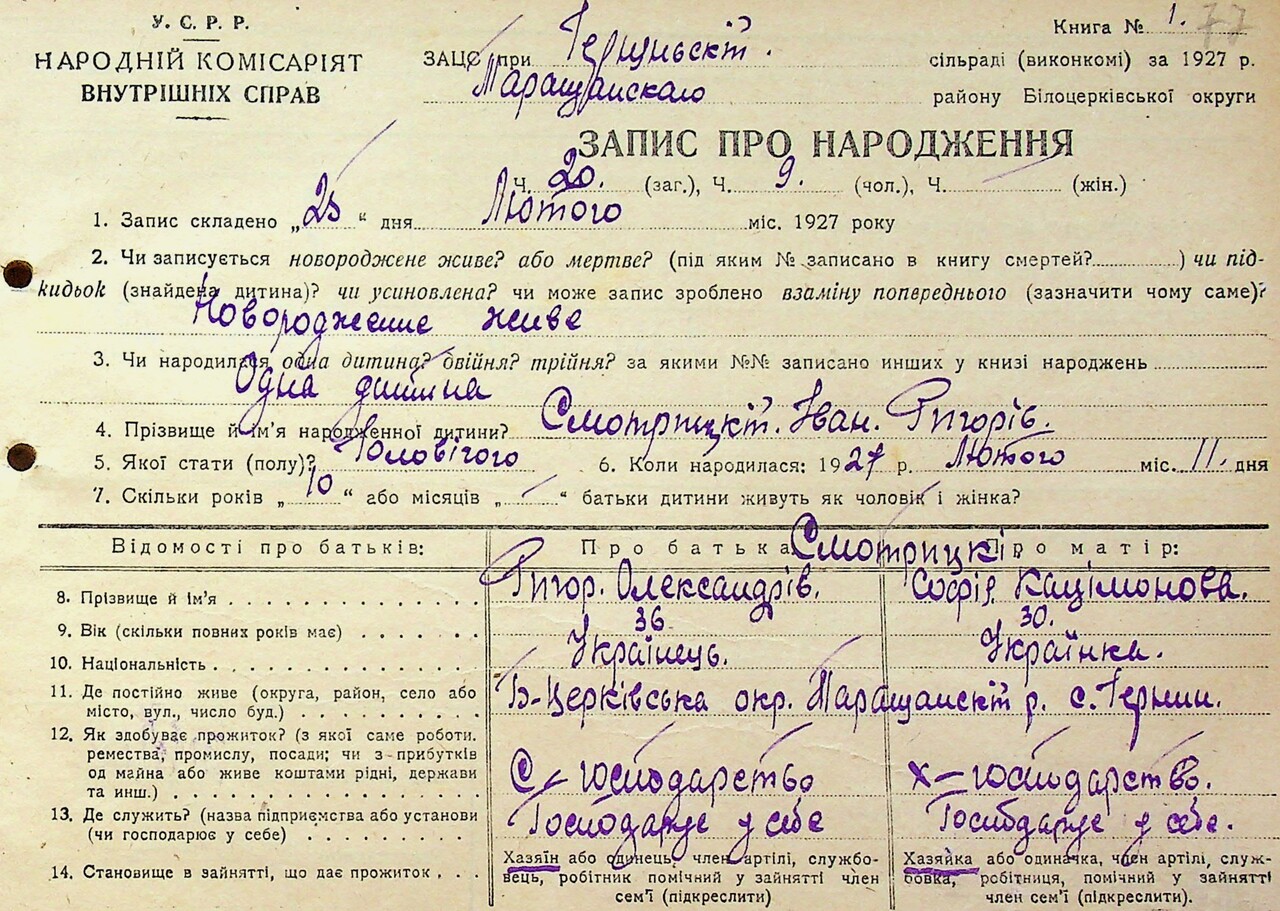 У. С. Р. Р.
НАРОДНІЙ КОМІСАРІЯТ
ВНУТРІШНІХ СПРАВ
Книга № 1. 77
ЗАЦС при сільраді (виконкомі) за 1927 р.
Таращанскаго району Білоцерківської округи
ЗАПИС ПРО НАРОДЖЕННЯ
Ч. 20. (заг.), Ч. 9. (чол.), Ч. (жін.)
1. Запис складено „25“ дня Лютого міс. 1927 року
2. Чи записується новороджене живе? або мертве? (під яким № записано в книгу смертей? ) чи під-
кидьок (знайдена дитина)? чи усиновлена? чи може запис зроблено взаміну попереднього (зазначити чому саме)?
Новородженне живе
3. Чи народилася одна дитина? двійня? трійня? за якими №№ записано инших у книзі народжень
Одна дитина
4. Прізвище й ім'я народженної дитини? Смотрицкій. Іван. Григорів.
5. Якої стати (полу)? Чоловічого 6. Коли народилася: 1927 р. Лютого міс. 11. дня
7. Скільки років „10“ або місяців „ “ батьки дитини живуть як чоловік і жінка?
Відомості про батьків: Про батька Про матір:
Смотрицкі
8. Прізвище й ім'я Григор. Олександрів. Софія
9. Вік (скільки повних років має) 36 30.
10. Національність Українець. Українка.
11. Де постійно живе (округа, район, село або
місто, вул., число буд.) Б-Церківська окр. Таращанскій р. с.
12. Як здобуває прожиток? (з якої саме роботи.
ремества, промислу, посади; чи з прибутків
од майна або живе коштами рідні, держави
та инш.) С-господарство х-господарство.
13. Де служить? (назва підприємства або установи
(чи господарює у себе) Господарує у себе Господарує у себе.
14. Становище в зайнятті, що дає прожиток
Хазяїн або одинець, член артілі, службо-
вець, робітник помічний у зайнятті член
сем'ї (підкреслити)
Хазяйка або одиначка, член артілі, служ-
бовка, робітниця, помічний у зайнятті
член сем'ї (підкреслити).